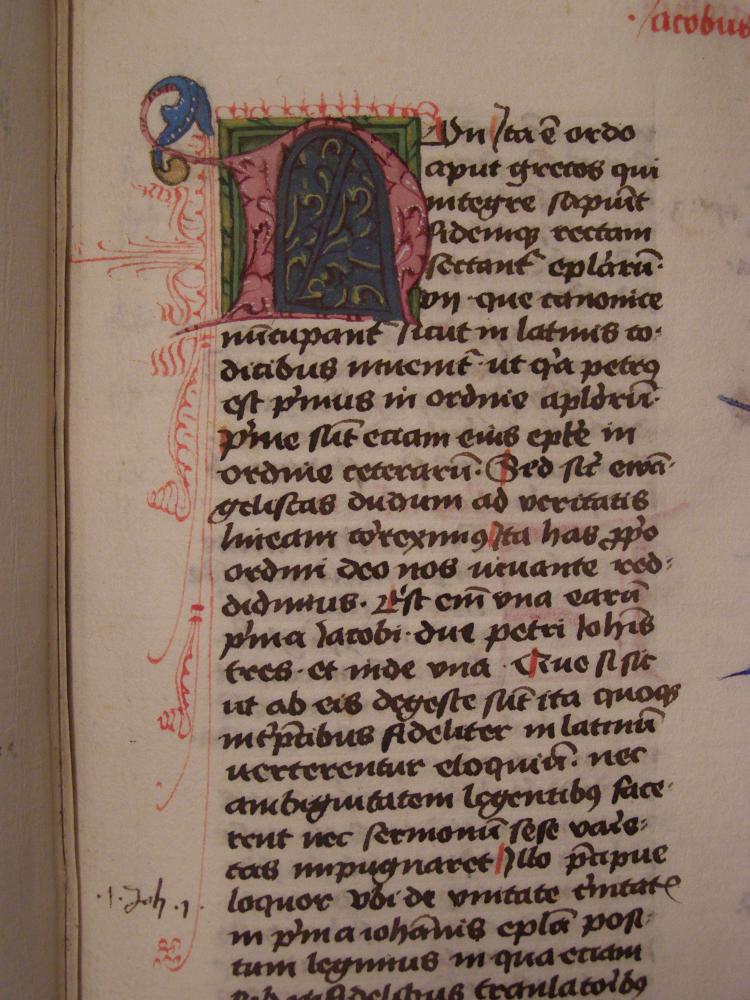 Jacobus
Non Ita ē ordo
aput grecos qui
integre sapiūt
fidemq; rectam
sectant᷑ epl̄arū·
vii· que canonice
nūcupant᷑ sicut in latinis co-
dicibus inuenit᷑· ut q̇a petrꝰ
est p̄mus in ordine apl̄orū·
p̄me sūt eciam eius epl̄e in
ordine ceterarū· Sed sic̄ ewā-
gelistas dudum ad veritatis
lineam correximꝰ Ita has ꝓpo
ordini deo nos iuuante red-
didimus· Est em̄ vna earū
p̄ma Iacobi· due petri Ioh̄is
tres· et iude vna· Que si sic
ut ab eis degeste sūt ita quoqꝫ
int̄p̄tibus fideliter in latinū
uerterentur eloquiū· nec
ambiguitatem legentibꝰ face-
rent nec sermonū sese vari̇e-
tas inpugnaret Illo p̄cipue
loquor vbi de vnitate t̄nitat
in p̄ma iohānis epl̄a posi-
tum legimus in qua eciam
ab infidelibus translatoibꝰ
·1· Joh ·1·